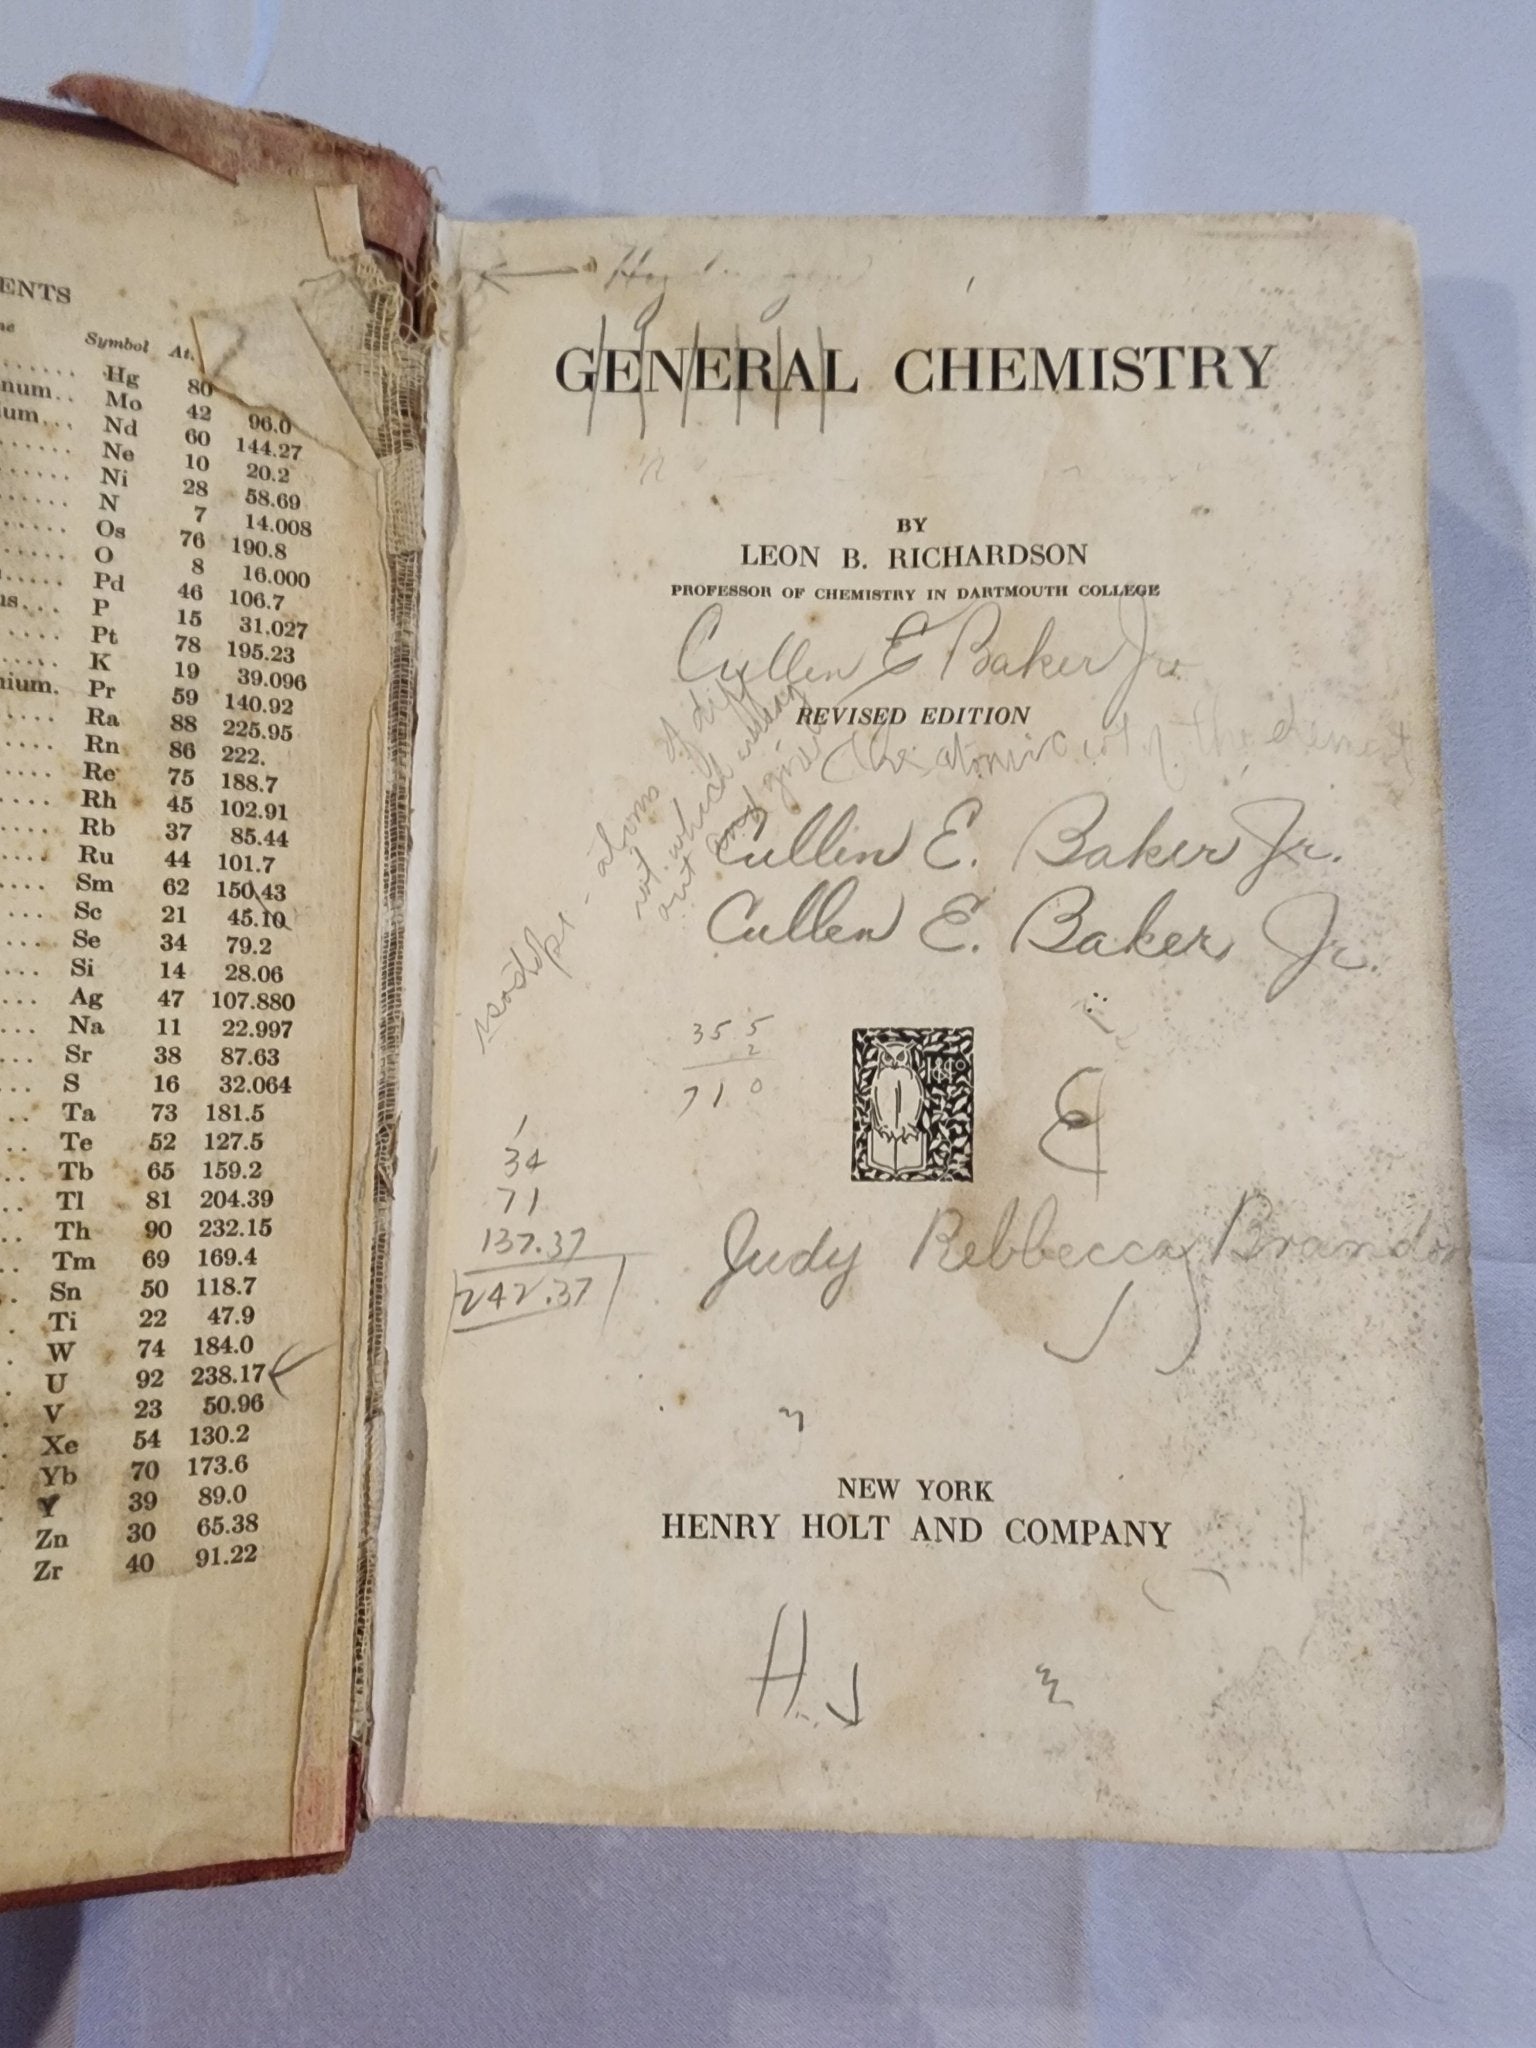 ENTS
Symbol At.
Hg 80
num.. Mo 42 96.0
ium... Nd 60 144.27
Ne 10 20.2
Ni 28 58.69
N 7 14.008
Os 76 190.8
O 8 16.000
Pd 46 106.7
us... P 15 31.027
Pt 78 195.23
K 19 39.096
nium. Pr 59 140.92
Ra 88 225.95
Rn 86 222.
Re 75 188.7
Rh 45 102.91
Rb 37 85.44
Ru 44 101.7
Sm 62 150.43
Sc 21 45.10
Se 34 79.2
Si 14 28.06
Ag 47 107.880
Na 11 22.997
Sr 38 87.63
S 16 32.064
Ta 73 181.5
Te 52 127.5
Tb 65 159.2
Tl 81 204.39
Th 90 232.15
Tm 69 169.4
Sn 50 118.7
Ti 22 47.9
W 74 184.0
U 92 238.17
V 23 50.96
Xe 54 130.2
Yb 70 173.6
Y 39 89.0
Zn 30 65.38
Zr 40 91.22
GENERAL CHEMISTRY
BY
LEON B. RICHARDSON
PROFESSOR OF CHEMISTRY IN DARTMOUTH COLLEGE
Cullen E Baker Jr.
REVISED EDITION
the atomic wt of the element
isotope - atoms of diff
wt. which
out and give
Cullen E. Baker Jr.
Cullen E. Baker Jr.
35 5
2
71 0
1889
34
71
137.37
242.37
E
Judy Rebbecca Brandon
NEW YORK
HENRY HOLT AND COMPANY
H. J